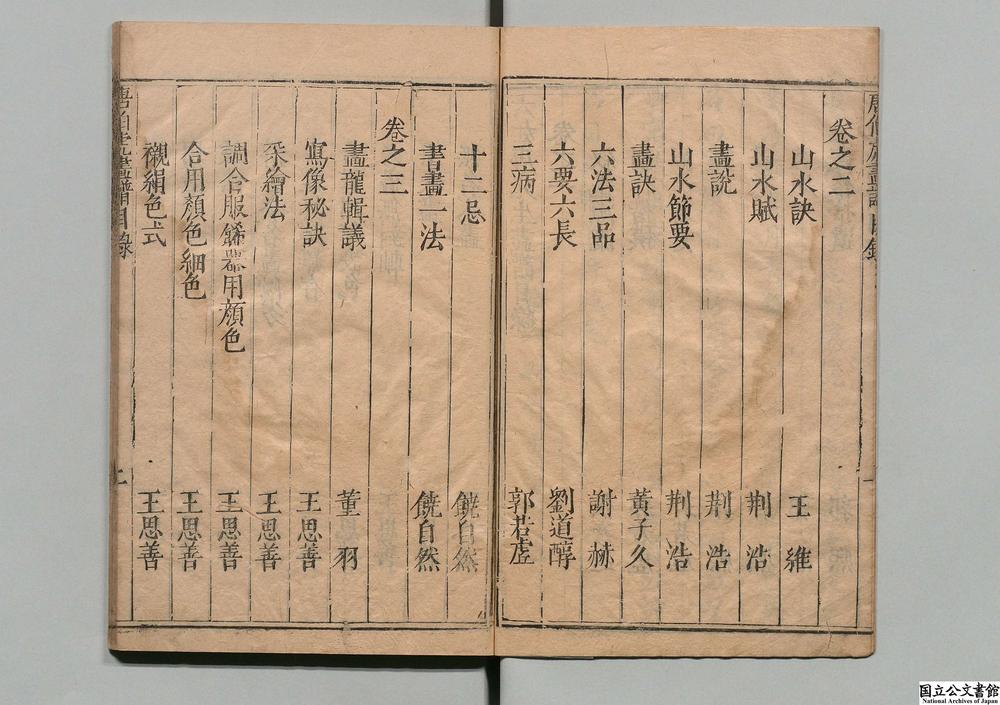 卷之二
山水訣 王維
山水賦 荆浩
畫說 荆浩
山水節要 荆浩
畫訣 黃子久
六法三品 謝赫
六要六長 劉道醇
三病 郭若虛
十二忌 饒自然
書畫一法 饒自然
卷之三
畫龍輯議 董羽
寫像秘訣 王思善
采繪法 王思善
調合服餙器用顏色 王思善
合用顏色細色 王思善
襯絹色式 王思善
畫譜目錄
国立公文書館
National Archives of Japan